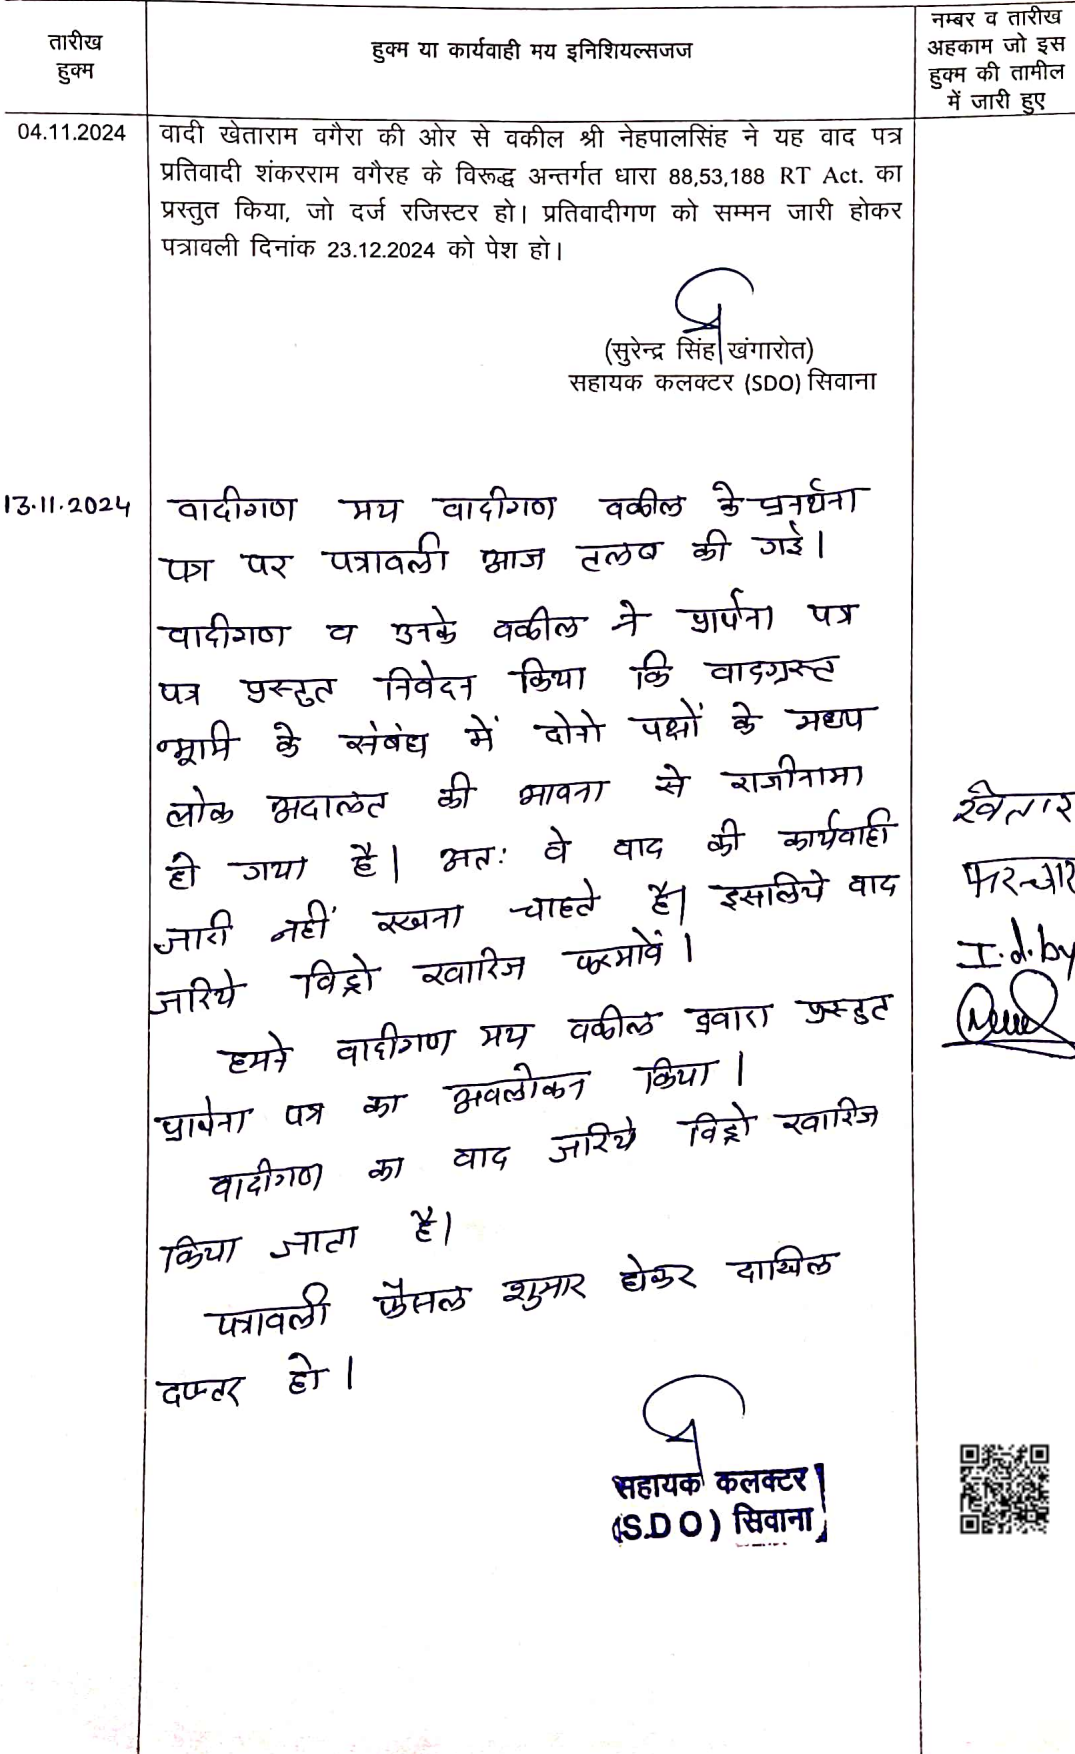 तारीख
हुक्म
हुक्म या कार्यवाही मय इनिशियल्सजज
नम्बर व तारीख
अहकाम जो इस
हुक्म की तामील
में जारी हुए
04.11.2024
वादी खेताराम वगैरा की ओर से वकील श्री नेहपालसिंह ने यह वाद पत्र
प्रतिवादी शंकरराम वगैरह के विरूद्ध अन्तर्गत धारा 88,53,188 RT Act. का
प्रस्तुत किया, जो दर्ज रजिस्टर हो। प्रतिवादीगण को सम्मन जारी होकर
पत्रावली दिनांक 23.12.2024 को पेश हो।
(सुरेन्द्र सिंह खंगारोत)
सहायक कलक्टर (SDO) सिवाना
13.11.2024
वादीगण मय वादीगण वकील के प्रार्थना
पत्र पर पत्रावली आज तलब की गई।
वादीगण व उनके वकील ने प्रार्थना पत्र
पत्र प्रस्तुत निवेदन किया कि वादग्रस्त
भूमि के संबंध में दोनो पक्षों के मध्य
लोक अदालत की भावना से राजीनामा
हो गया है। अतः वे वाद की कार्यवाही
जारी नहीं रखना चाहते है। इसलिये वाद
जरिये विड्रो खारिज फरमावें।
हमने वादीगण मय वकील द्वारा प्रस्तुत
प्रार्थना पत्र का अवलोकन किया।
वादीगण का वाद जरिये विड्रो खारिज
किया जाता है।
पत्रावली फैसल शुमार होकर दाखिल
दफ्तर हो।
सहायक कलक्टर
(S.D O) सिवाना
खेतार
I.d.by